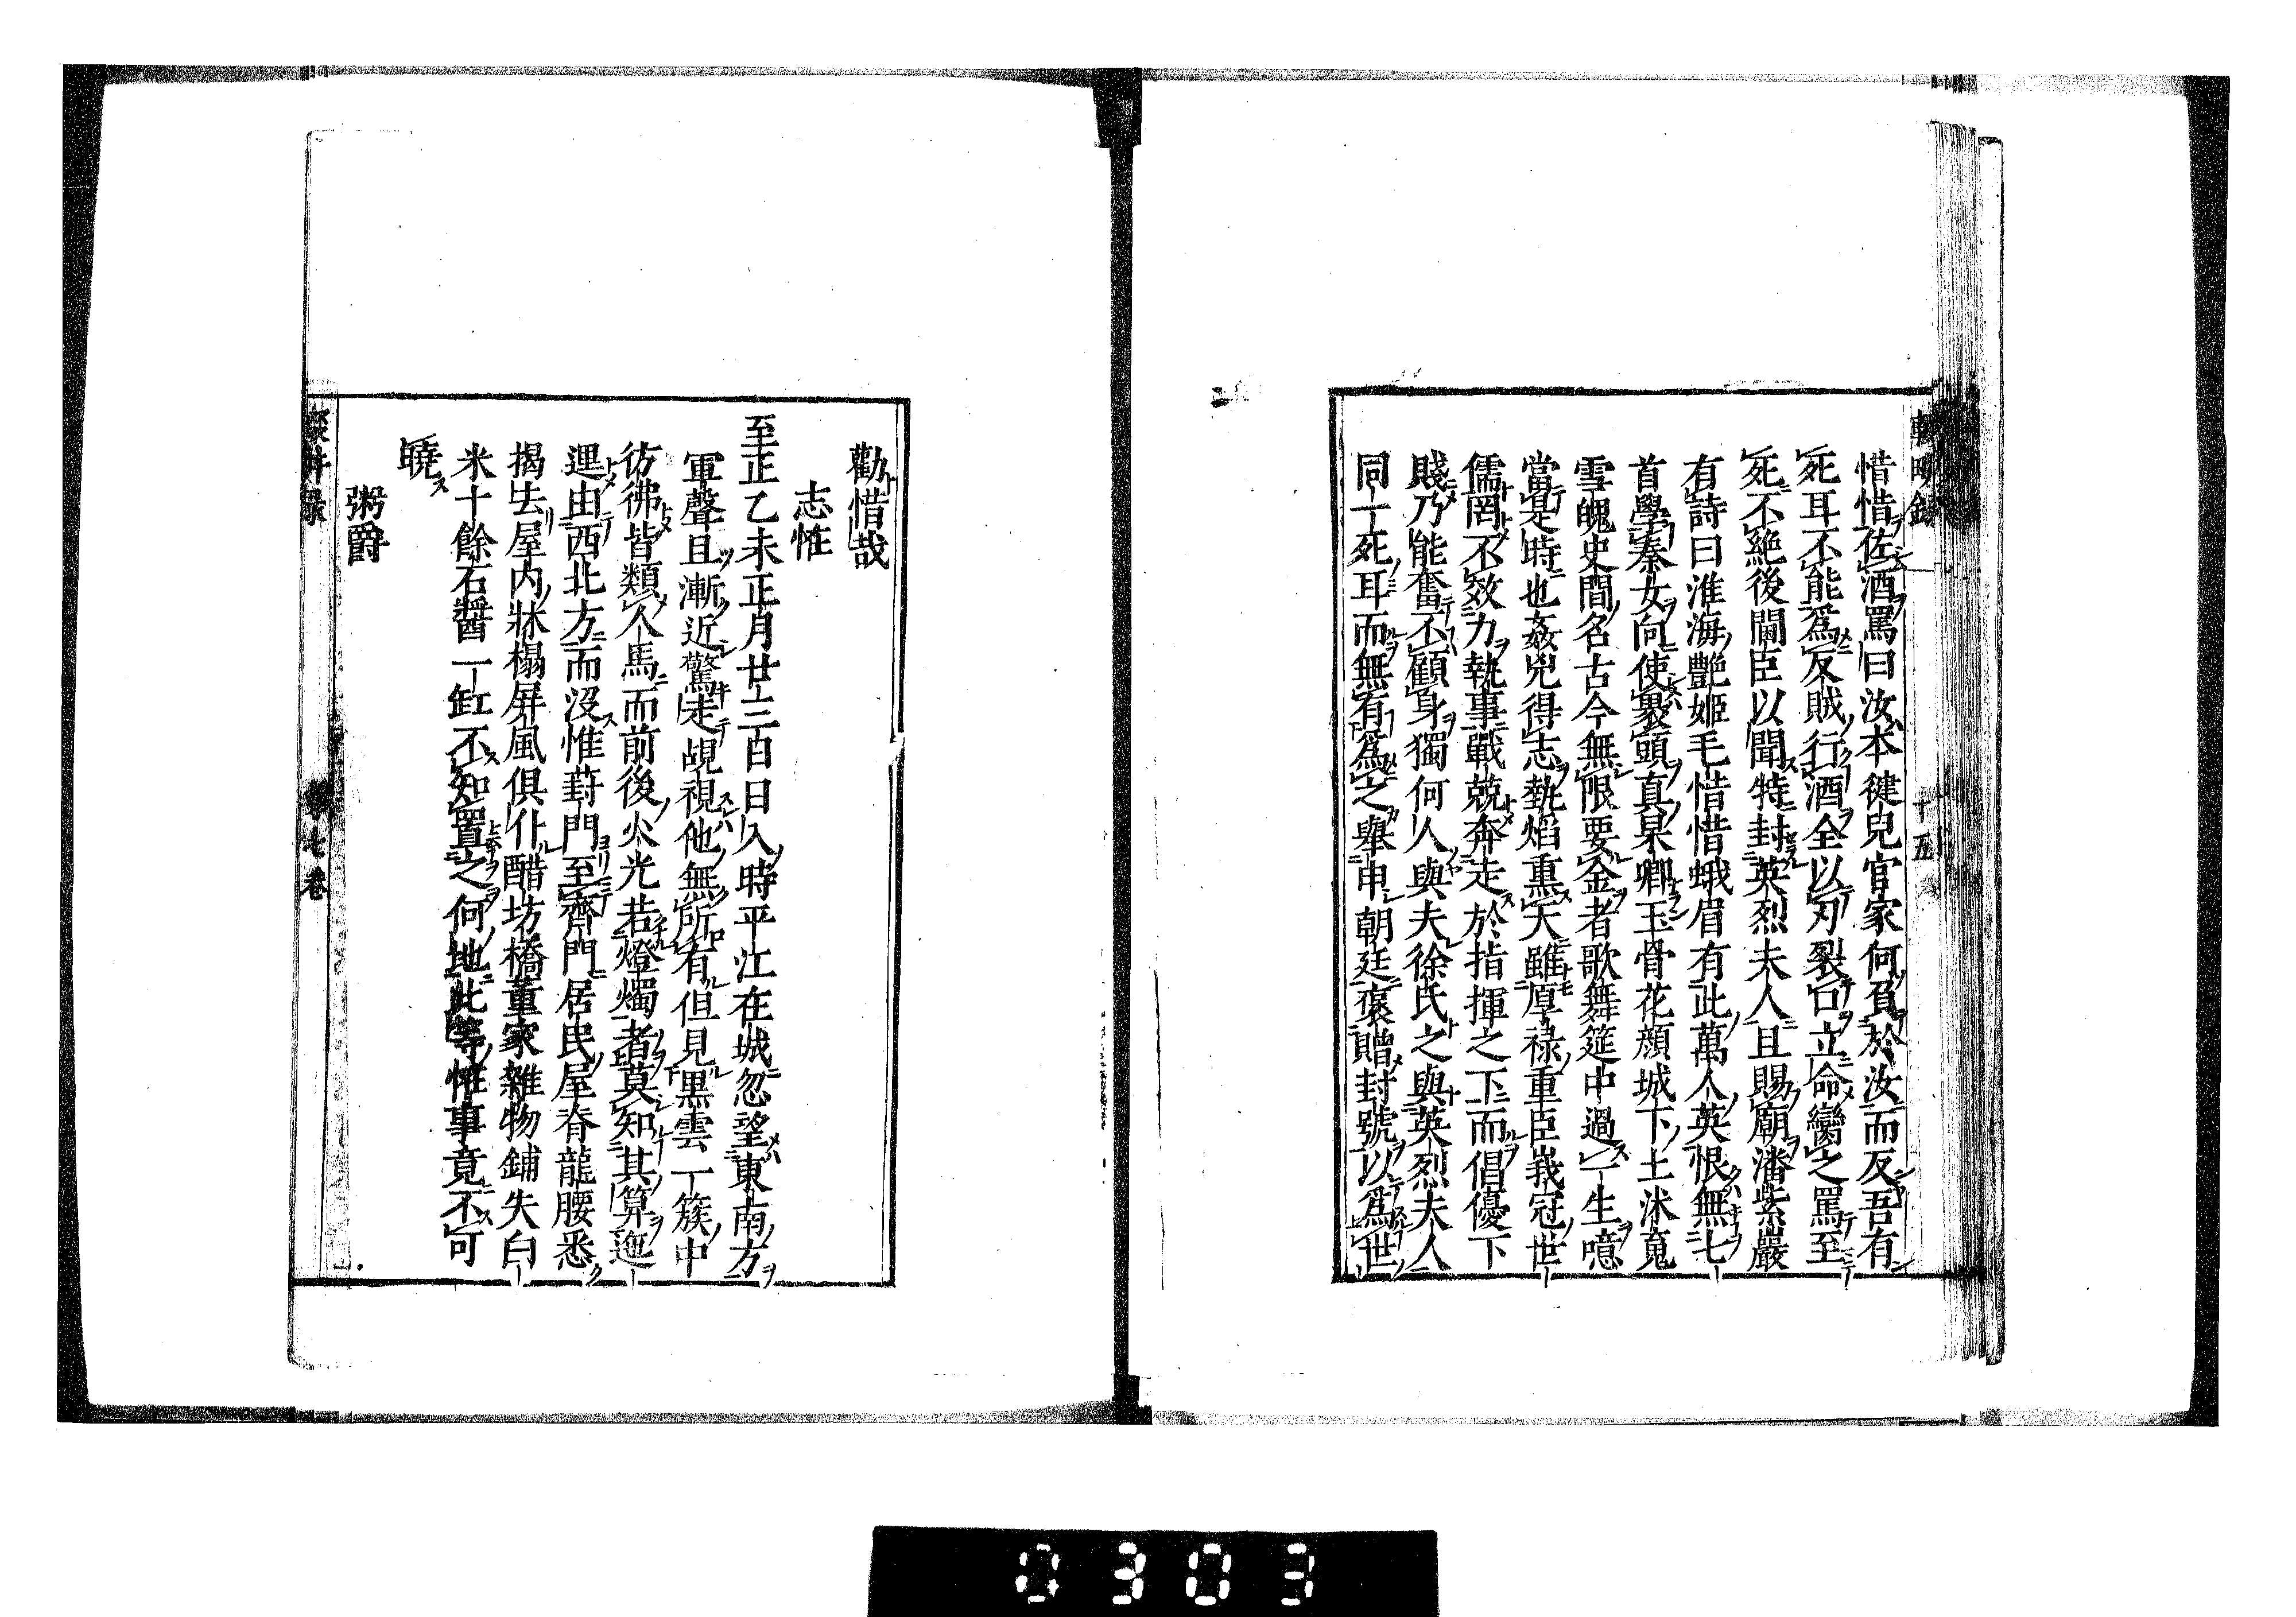 惜惜佐酒罵曰汝本健兒官家何負於汝而反吾有
死耳不能爲反賊行酒全以刃裂口立命臠之罵至
死不絶後閫臣以聞特封英烈夫人且賜廟潘紫巖
有詩曰淮海艷姬毛惜惜蛾眉有此萬人英恨無七
首學秦女向使裹頭真杲卿玉骨花顔城下土冰䰟
雪魄史間名古今無限要金者歌舞筵中過一生噫
當是時也姦兇得志㷍焰熏天雖厚禄重臣峩冠世
儒罔不效力執事戰兢奔走於指揮之下而倡優下
賤乃能奮不顧身獨何人與夫徐氏之與英烈夫人
同一死耳而無有爲之舉申朝廷褒贈封號以爲世
十五
勸惜哉
志恠
至正乙未正月廿二三日日入時平江在城忽望東南方
軍聲且漸近驚走覘視他無所有但見黒雲一簇中
彷彿皆類人馬而前後火光若燈燭者莫知其算迤
逦由西北方而没惟葑門至齊門居民屋脊龍腰悉
揭去屋内牀榻屏風俱仆醋坊橋董家雜物鋪失白
米十餘石醤一缸不知置之何地此等恠事竟不可
曉
粥爵
第七巻
0303